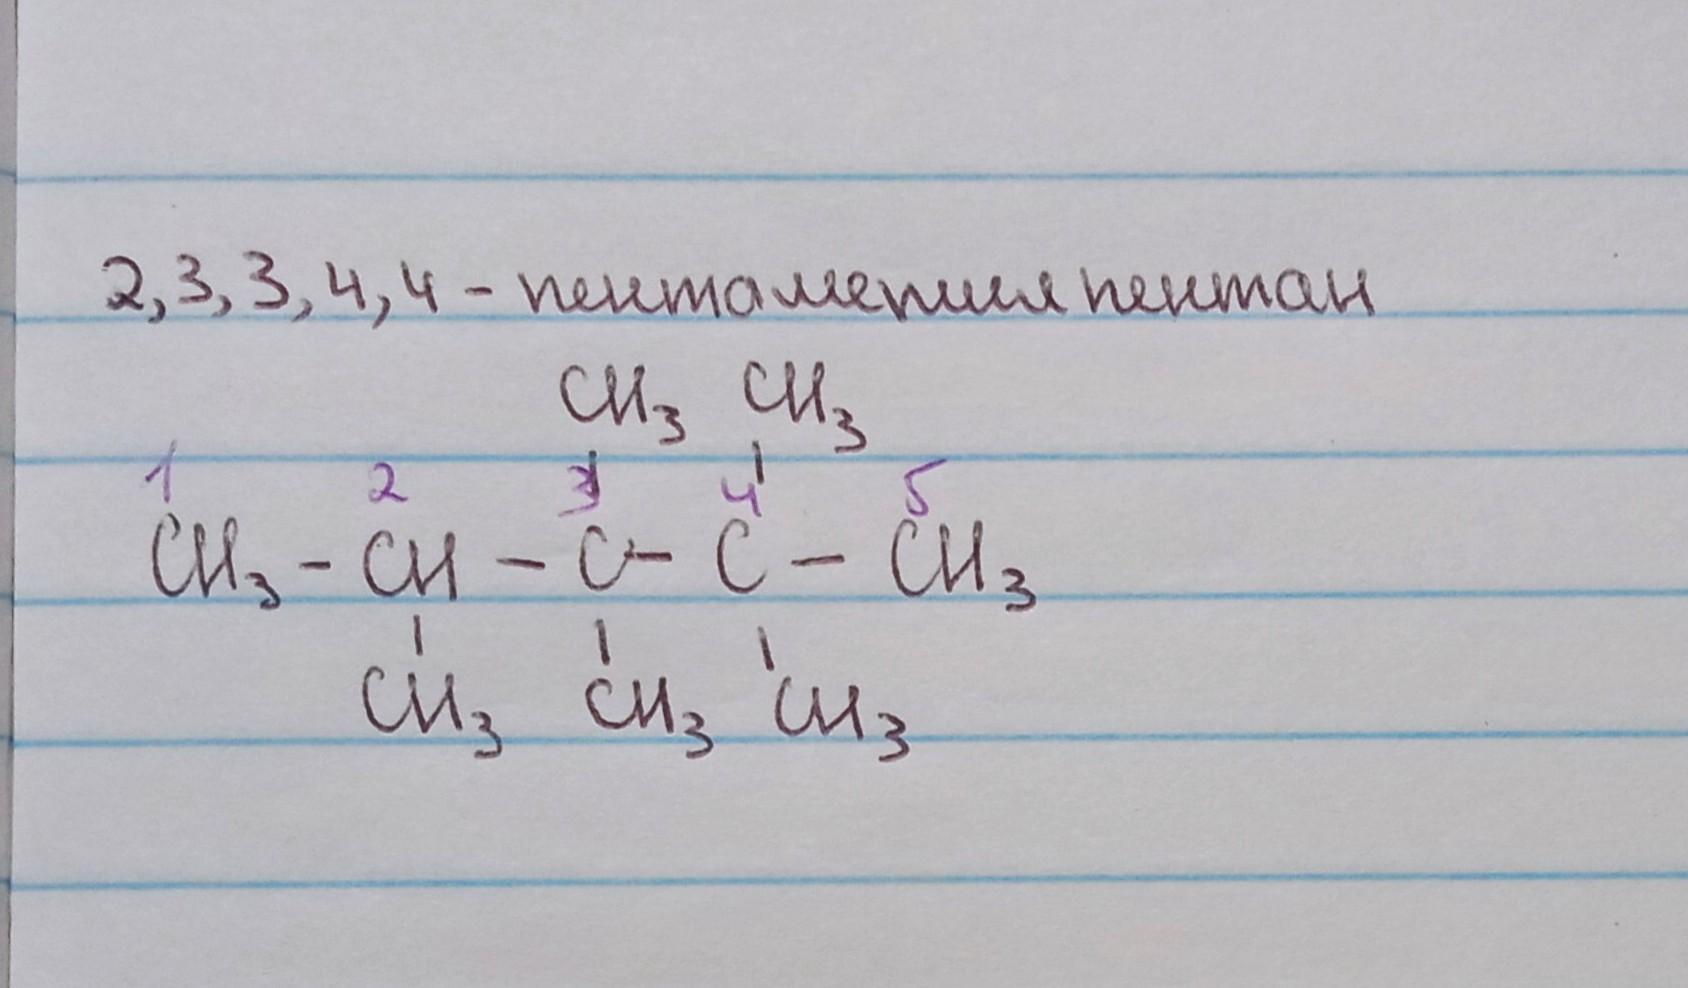 2,3,3,4,4-пентаметилпентан
CH₃ CH₃
1 2 3 4 5
CH₃ - CH - C - C - CH₃
CH₃ CH₃ CH₃